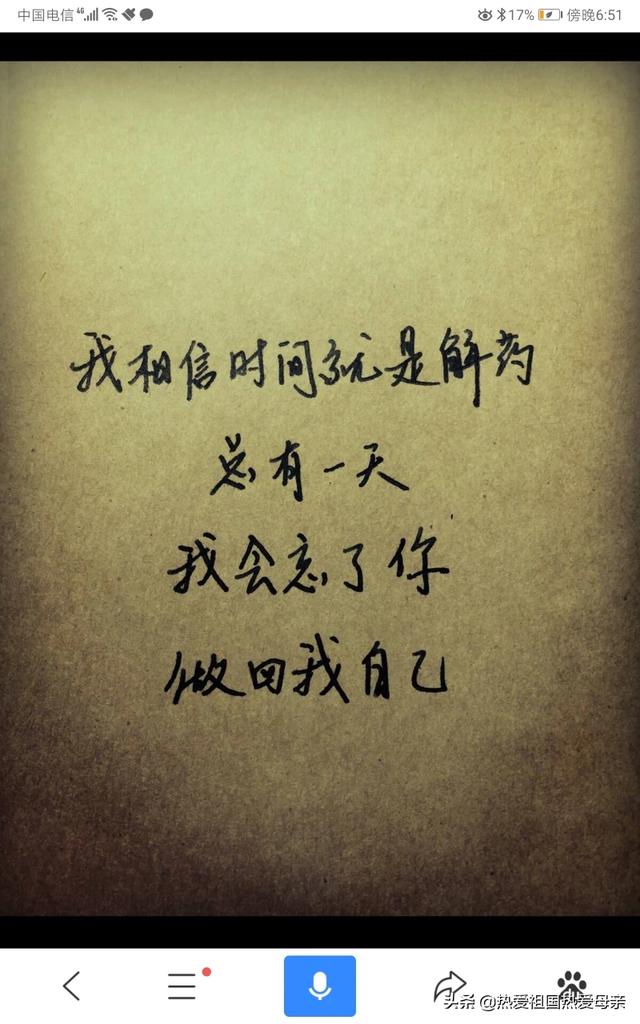 中国电信 4G 17% 傍晚6:51
我相信时间就是解药
总有一天
我会忘了你
做回我自己
头条 @热爱祖国热爱母亲